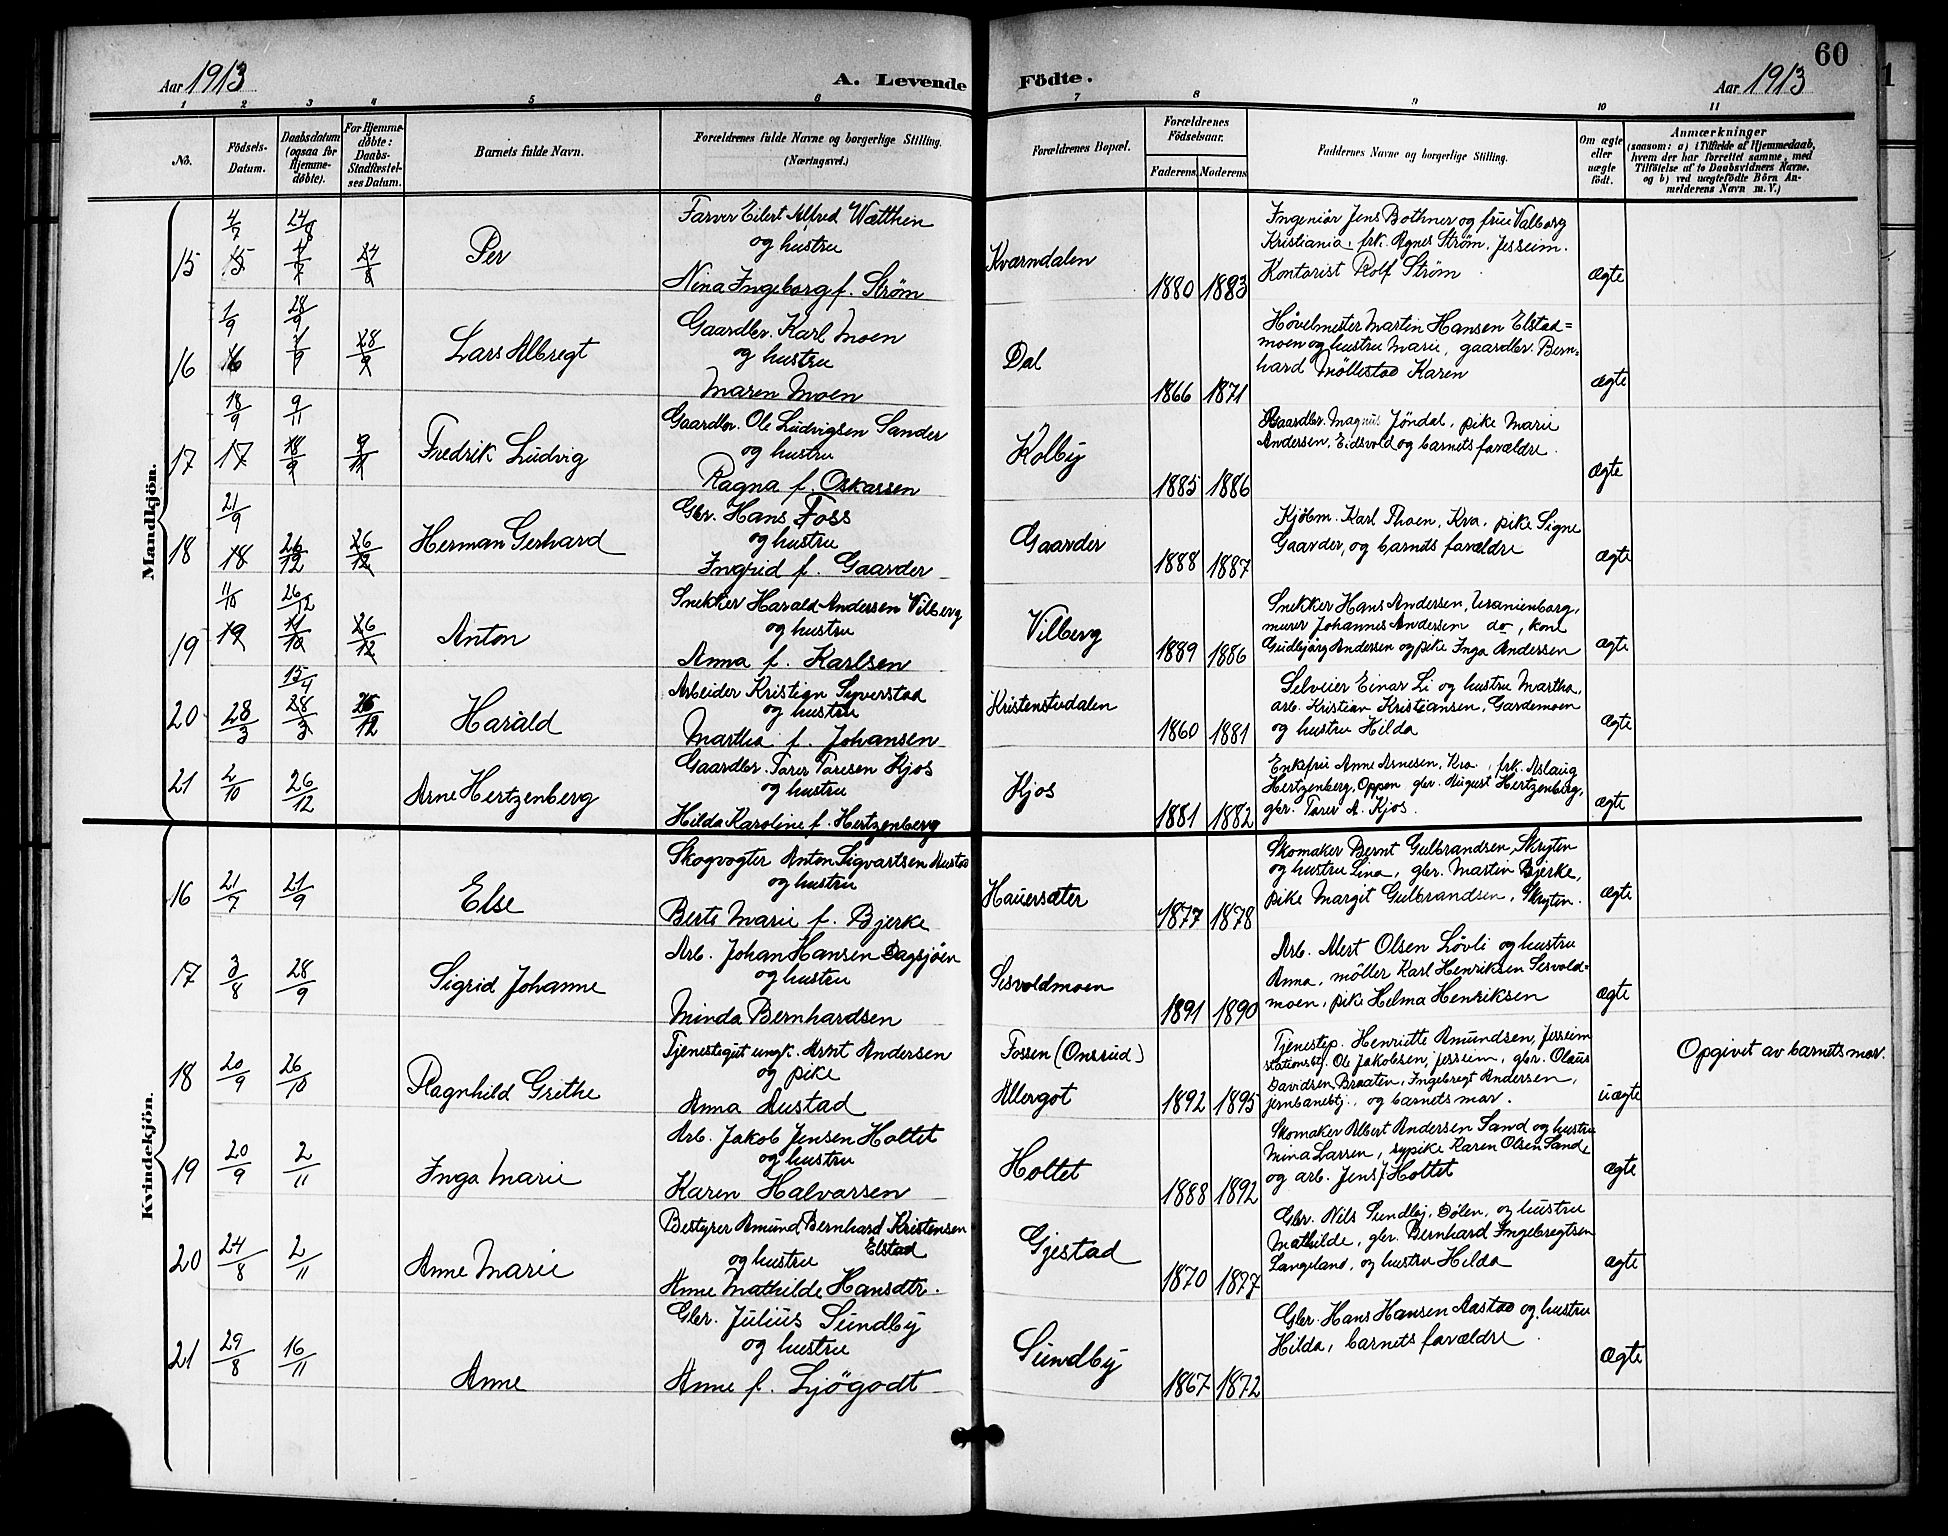 60
Aar 1913
A. Levende Födte.
Aar 1913
1 2 3 4 5 6 7 8 9 10 11
No.
Födsels-Datum.
Daabsdatum (ogsaa for Hjemme-döbte).
For Hjemme-döbte: Daabs-Stadfæstel-ses Datum.
Barnets fulde Navn.
Forældrenes fulde Navne og borgerlige Stilling.
(Næringsvei.)
Forældrenes Bopæl.
Forældrenes Födselsaar.
Faderens. Moderens.
Faddernes Navne og borgerlige Stilling.
Om ægte eller uægte födt.
Anmærkninger
(saasom: a) i Tilfælde af Hjemmedaab,
hvem der har forrettet samme, med
Tilföielse af to Daabsvidners Navne,
og b) ved uægtefödte Börn An-
melderens Navn m. V.)
Mandkjön.
15 4/7 24/8 Per
Farver Eilert Alfred Wætthen
og hustru
Nina Ingeborg f. Strøm
Kværndalen 1880 1883
Ingeniör Jens Bothner og frue Valborg
Kristiania, frk. Agnes Strøm, Jesseim.
Kontorist Rolf Strøm
ægte
16 1/9 28/9 Lars Albregt
Gaardbr. Karl Moen
og hustru
Maren Moen
Dal 1866 1871
Høvelmester Martin Hansen Elstad=
moen og hustru Marie, gaardbr. Bern=
hard Möllestad Karen
ægte
17 18/9 9/11 Fredrik Ludvig
Gaardbr. Ole Ludvigsen Sander
og hustru
Ragna f. Oskarsen
Kolby 1885 1886
Gaardbr. Magnus Jöndal, pike Marie
Andersen, Eidsvold og barnets forældre.
ægte
18 21/9 26/12 26/12 Herman Gerhard
Gbr. Hans Foss
og hustru
Ingrid f. Gaarder
Gaarder 1888 1887
Kjöbm. Karl Thoen, Kra, pike Signe
Gaarder, og barnets forældre
ægte
19 11/10 26/12 Anton
Snekker Harald Andersen Vilberg
og hustru
Anna f. Karlsen
Vilberg 1889 1886
Snekker Hans Andersen, Uranienborg,
murer Johannes Andersen do, kone
Gudbjörg Andersen og pike Inga Andersen
ægte
20 28/3 15/4 Harald
Arbeider Kristian Syverstad
og hustru
Martha f. Johansen
Kristenstudalen 1860 1881
Selveier Einar Li og hustru Martha,
arb. Kristian Kristiansen, Gardemoen
og hustru Hilda
ægte
21 2/10 26/12 Arne Hertzenberg
Gaardbr. Torer Toresen Kjos
og hustru
Hilda Karoline f. Hertzenberg
Kjos 1881 1882
Enkefru Anne Arnesen, Kra, frk. Aslaug
Hertzenberg, Oppen gbr. August Hertzenberg,
gbr. Torer A. Kjos.
ægte
Kvindekjön.
16 21/7 21/9 Else
Skogvogter Anton Sigvartsen Austad
og hustru
Berte Marie f. Bjerke
Hauersæter 1877 1878
Skomaker Bernt Gulbrandsen, Skryten
og hustru Lina, gbr. Martin Bjerke,
pike Margit Gulbrandsen, Skryten.
ægte
17 3/8 28/9 Sigrid Johanne
Arb. Johan Hansen Dagsjöen
og hustru
Minda Bernhardsen
Sisvoldmoen 1891 1890
Arb. Alert Olsen Lövli og hustru
Anna, möller Karl Henriksen Sisvold=
moen, pike Helma Henriksen
ægte
18 20/9 26/10 Ragnhild Grethe
Tjenestegut ungk. Arnt Andersen
og pike
Anna Austad
Fossen (Onsrud)
Allergot 1892 1895
Tjenestep. Henriette Amundsen, Jesseim
stationsbtj. Ole Jakobsen, Jesseim, gbr. Olaus
Davidsen Braaten, Ingebregt Andersen,
jernbanebtj., og barnets mor.
uægte
Opgivet av barnets mor.
19 20/9 2/11 Inga Marie
Arb. Jakob Jensen Holtet
og hustru
Karen Halvorsen
Holtet 1888 1892
Skomaker Albert Andersen Sand og hustru
Mina Larsen, sypike Karen Olsen Sande
og arb. Jens J Holtet
ægte
20 24/8 2/11 Anne Marie
Bestyrer Amund Bernhard Kristensen
Elstad
og hustru
Anne Mathilde Hansdtr.
Gjestad 1870 1877
Gbr. Nils Sundby, Dölen, og hustru
Mathilde, gbr. Bernhard Ingebregtsen
Langeland, og hustru Hilda
ægte
21 29/8 16/11 Anne
Gbr. Julius Sundby
og hustru
Anne f. Ljögodt
Sundby 1867 1872
Gbr. Hans Hansen Aastad og hustru
Hilda, barnets forældre
ægte